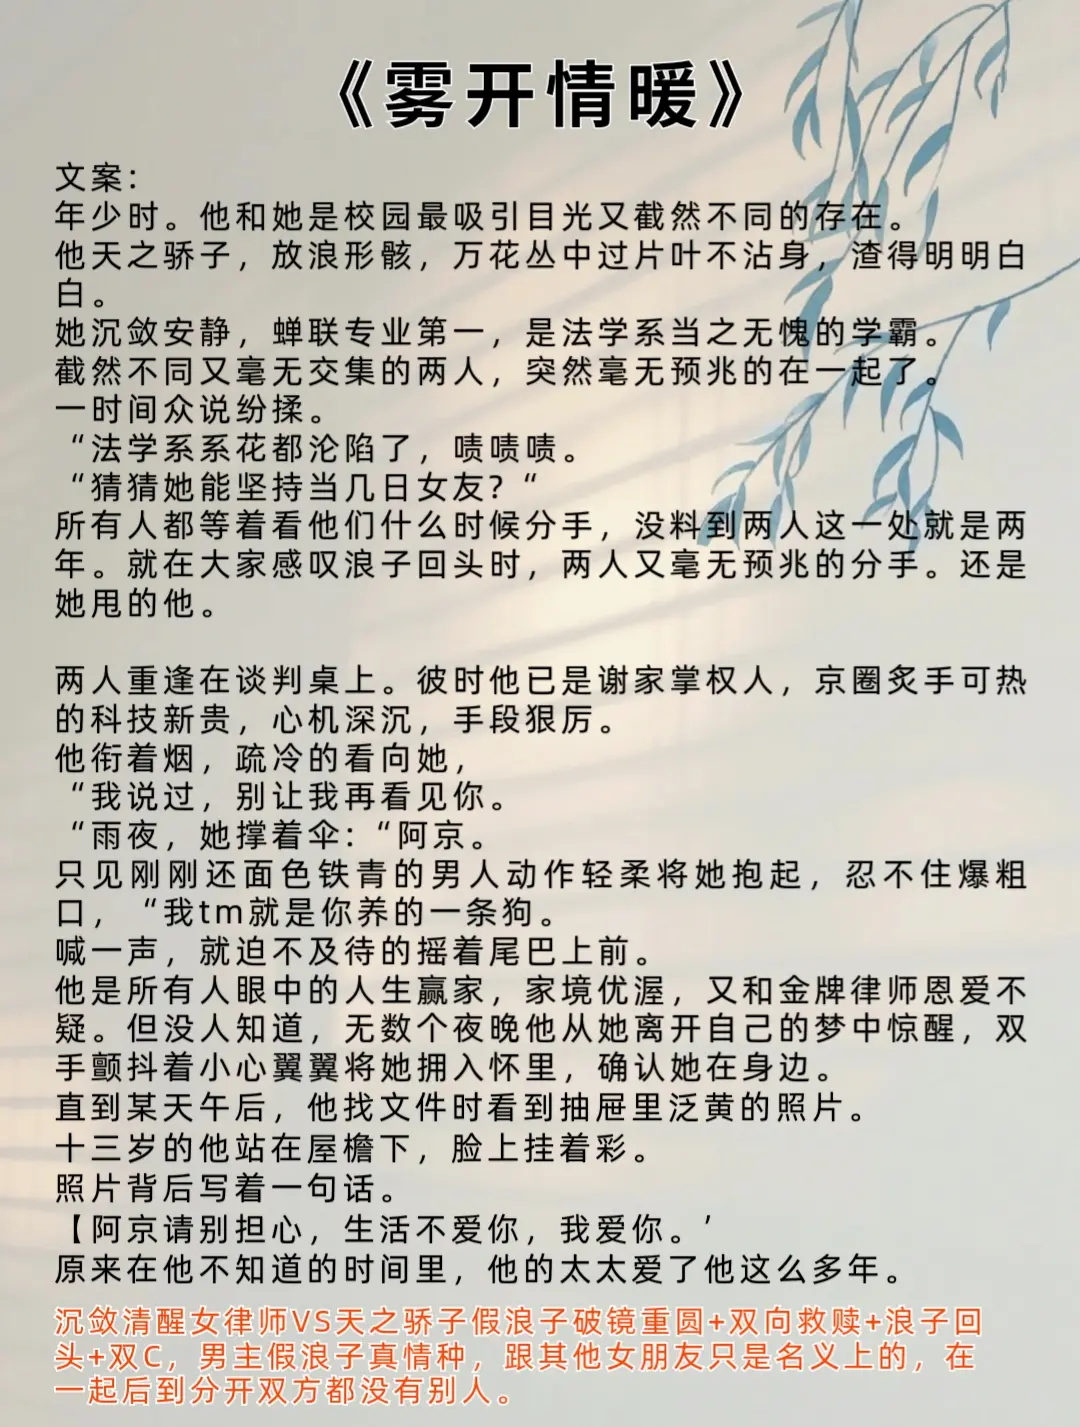 《雾开情暖》
文案：
年少时。他和她是校园最吸引目光又截然不同的存在。
他天之骄子，放浪形骸，万花丛中过片叶不沾身，渣得明明白
白。
她沉敛安静，蝉联专业第一，是法学系当之无愧的学霸。
截然不同又毫无交集的两人，突然毫无预兆的在一起了。
一时间众说纷揉。
“法学系系花都沦陷了，啧啧啧。
“猜猜她能坚持当几日女友？“
所有人都等着看他们什么时候分手，没料到两人这一处就是两
年。就在大家感叹浪子回头时，两人又毫无预兆的分手。还是
她甩的他。
两人重逢在谈判桌上。彼时他已是谢家掌权人，京圈炙手可热
的科技新贵，心机深沉，手段狠厉。
他衔着烟，疏冷的看向她，
“我说过，别让我再看见你。
“雨夜，她撑着伞：“阿京。
只见刚刚还面色铁青的男人动作轻柔将她抱起，忍不住爆粗
口，“我tm就是你养的一条狗。
喊一声，就迫不及待的摇着尾巴上前。
他是所有人眼中的人生赢家，家境优渥，又和金牌律师恩爱不
疑。但没人知道，无数个夜晚他从她离开自己的梦中惊醒，双
手颤抖着小心翼翼将她拥入怀里，确认她在身边。
直到某天午后，他找文件时看到抽屉里泛黄的照片。
十三岁的他站在屋檐下，脸上挂着彩。
照片背后写着一句话。
【阿京请别担心，生活不爱你，我爱你。’
原来在他不知道的时间里，他的太太爱了他这么多年。
沉敛清醒女律师VS天之骄子假浪子破镜重圆+双向救赎+浪子回
头+双C，男主假浪子真情种，跟其他女朋友只是名义上的，在
一起后到分开双方都没有别人。